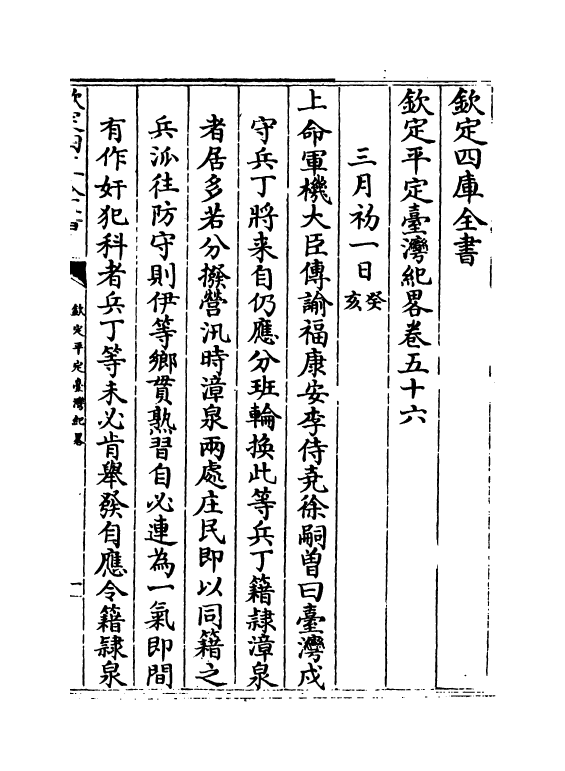 欽定四庫全書
欽定平定臺灣紀畧卷五十六
三月初一日癸亥
上命軍機大臣傳諭福康安李侍堯徐嗣曾曰臺灣戍
守兵丁將来自仍應分班輪換此等兵丁籍隷漳泉
者居多若分撥營汛時漳泉兩處庄民即以同籍之
兵派往防守則伊等鄉貫熟習自必連為一氣即間
有作奸犯科者兵丁等未必肯舉發自應令籍隷泉
欽定平定臺灣紀畧
一